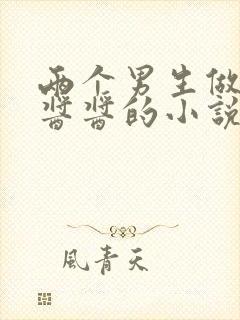 两个男生做
酱酱的小说
風青天